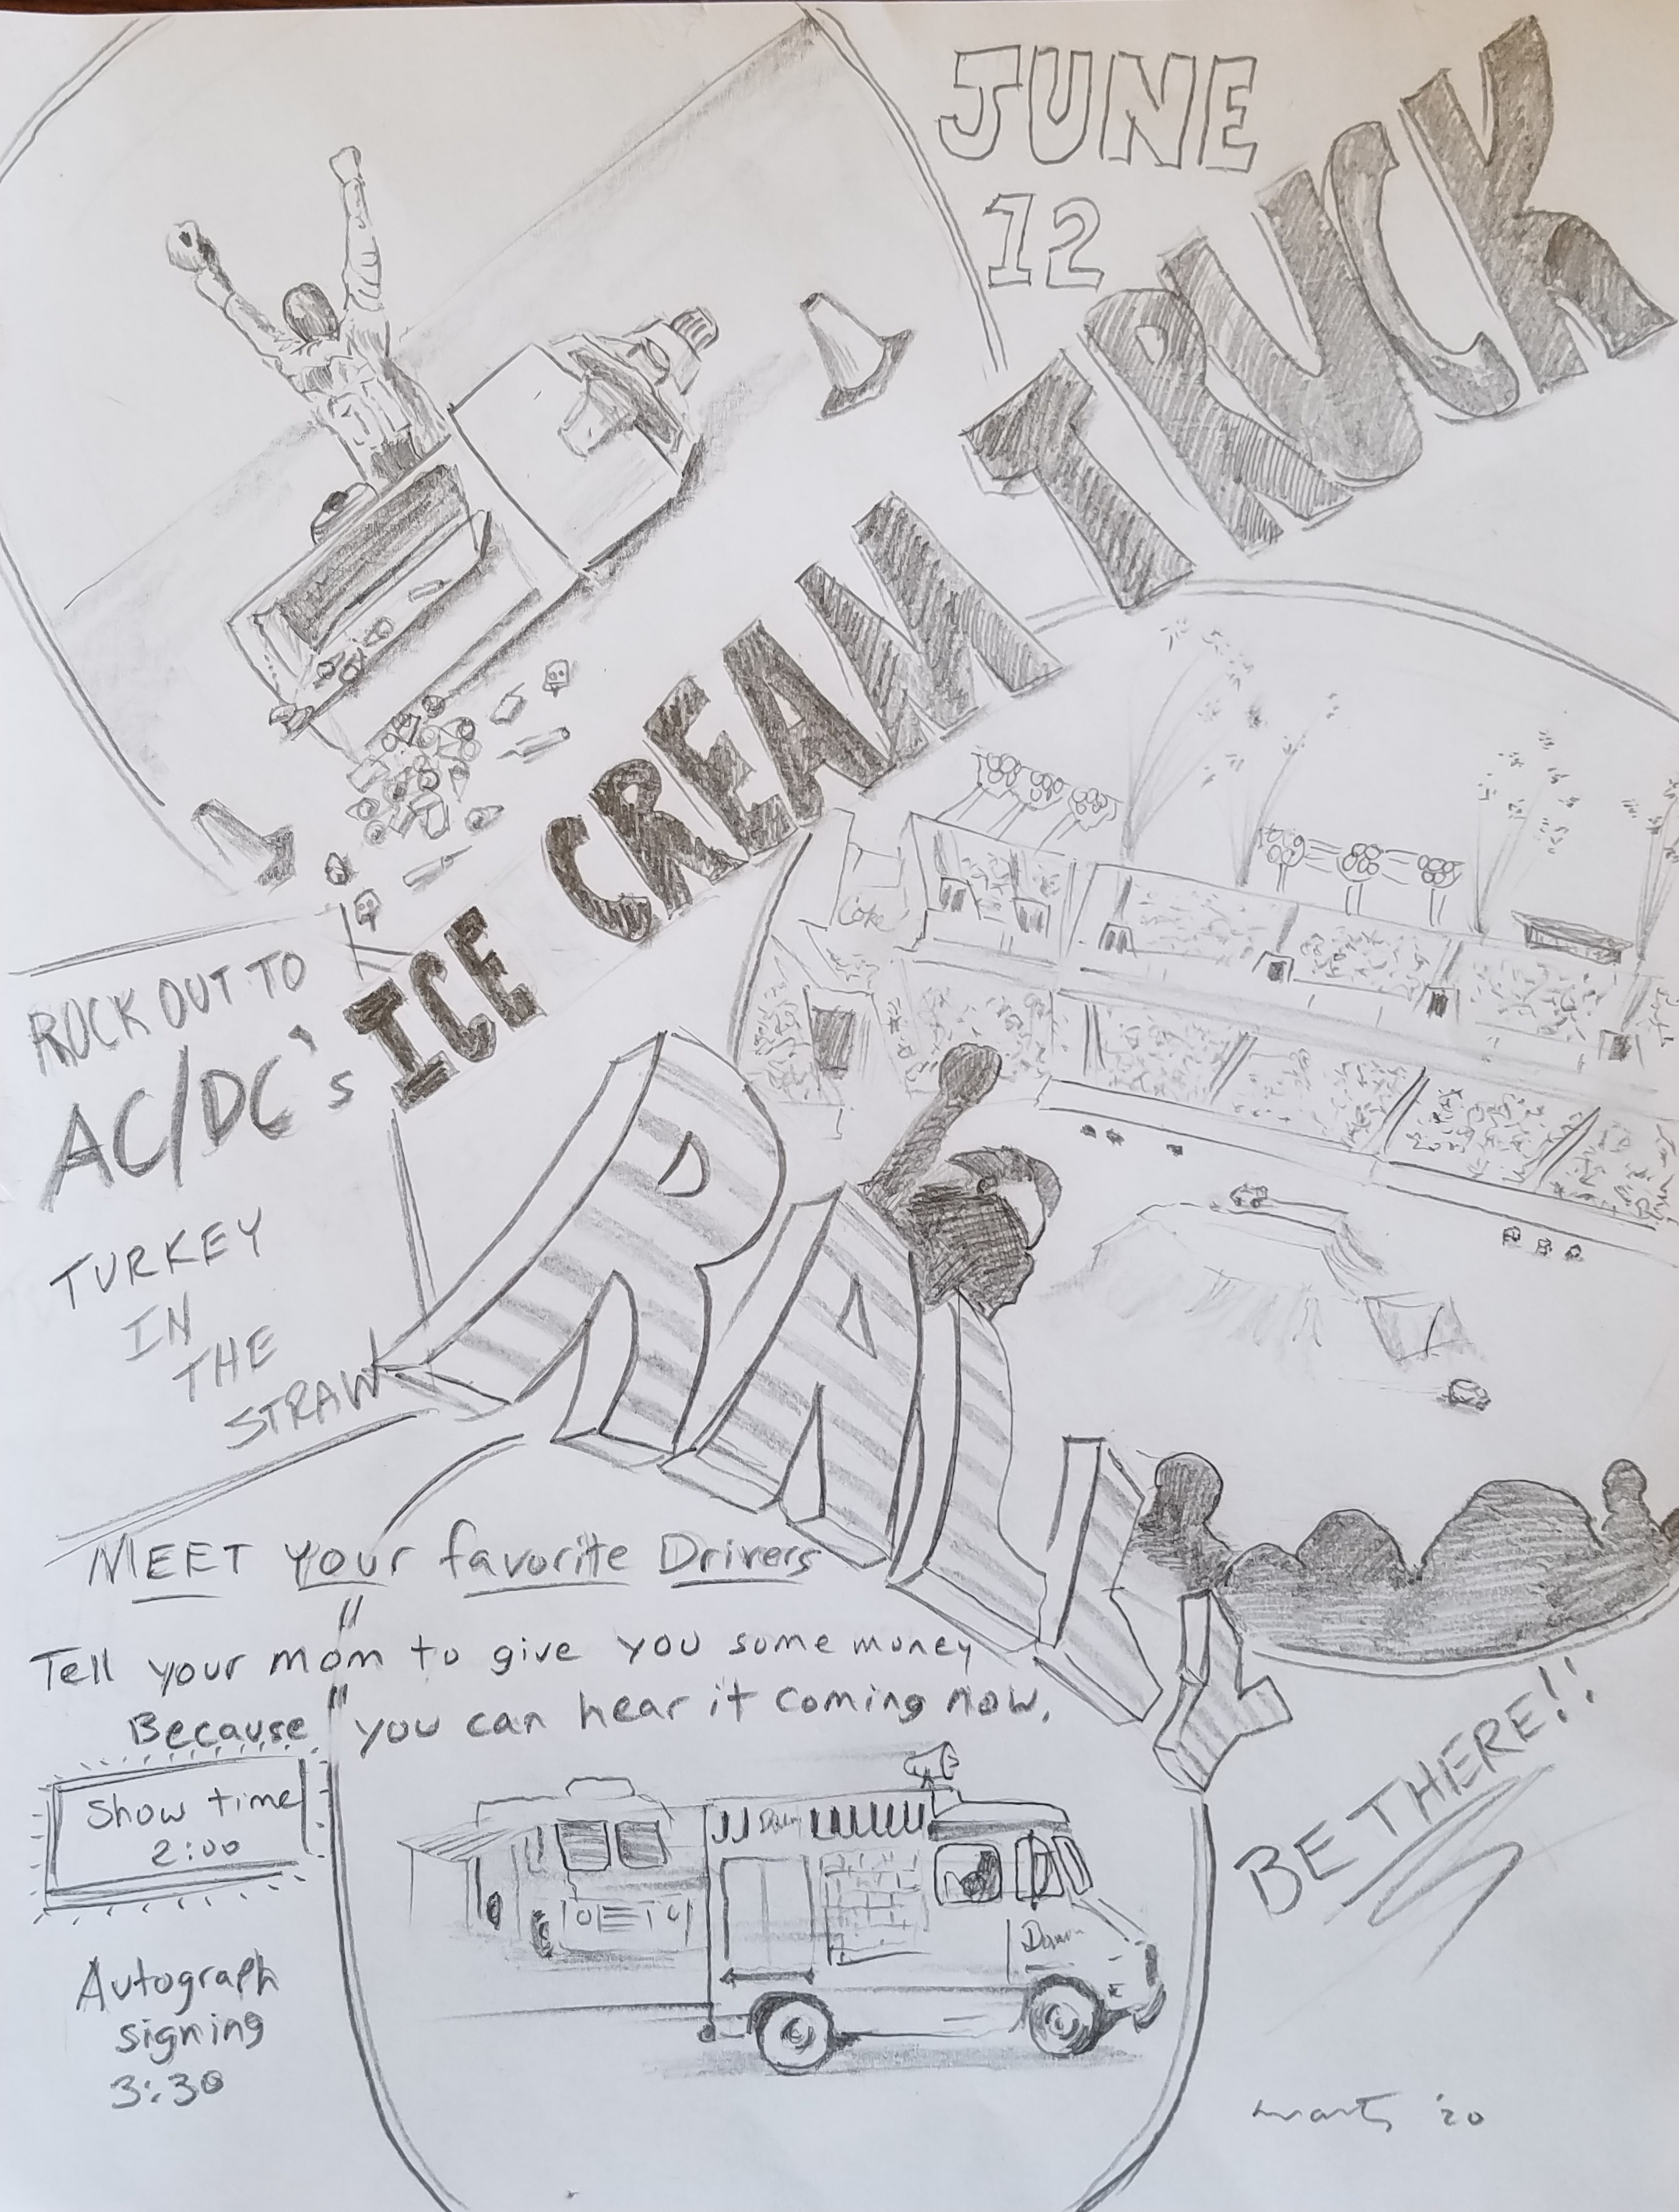 JUNE
12
ICE CREAM TRUCK
RALLY
Coke
ROCK OUT TO
AC/DC's
TURKEY
IN
THE
STRAW
MEET your favorite Drivers
Tell your mom to give you some money
Because "you can hear it coming now.
Show time
2:00
Autograph
signing
3:30
BE THERE!!
'20